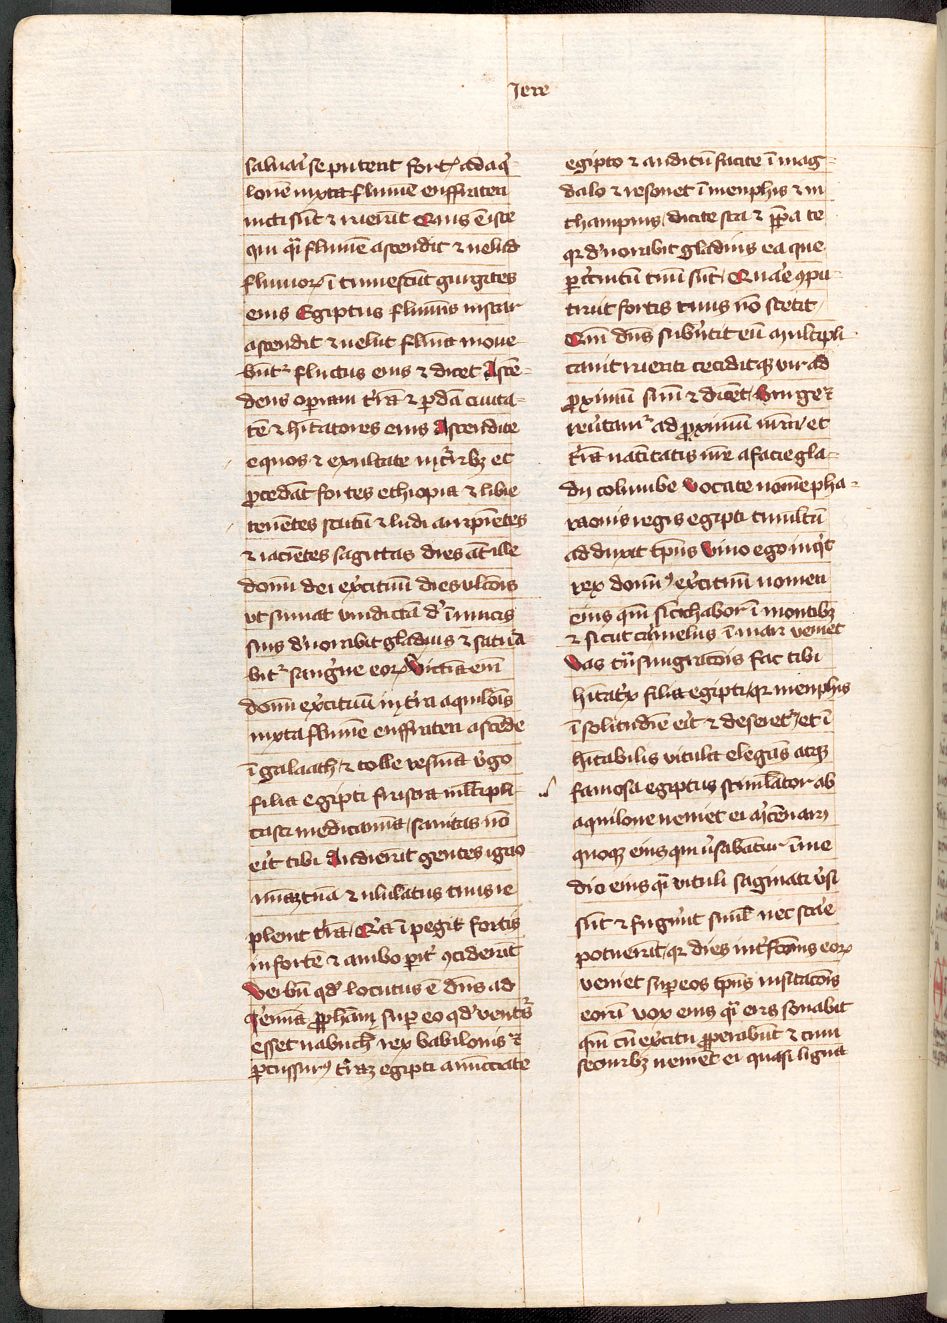 Jere
saluaͥ se putent fortꝭ ad aq̇
lonē iuxta flumē euffraten
victi sūt ⁊ ruerūt Quis ē iste
qui qͣi flumē ascendit ⁊ uelud
fluuioꝝ ītumescūt gurgites
eius Egiptus flumīs instar
ascendit ⁊ uelut flūīa moue
būtᷣ fluctus eius ⁊ dicet Ascē
dens operiam tͬrā ⁊ ꝑdā ciuita
tē ⁊ hītatores eius Ascendite
equos ⁊ exultate ī cͬribꝫ et
ꝓcedāt fortes ethiopia ⁊ libie
tenētes scutū ⁊ lidi arripiētes
⁊ iaciētes sagittas dies aūt ille
domī dei exͬcituū dies ulcōis
vt sumat vindictā d' īimicis
suis d'uorabit gladius ⁊ saturͣ
bitᷣ sangͥne eoꝝ Victīa em̄
domī exͬcituū ī tͬra aquilōis
iuxta flumē euffraten ascēde
ī galaath ⁊ tolle resinā v̓go
filia egipti frustra ml̄tipli
casti medicamīa sanitas nō
eͥt tibi Audierūt gentes igno
miniā tuā ⁊ ululatus tuus re
pleuit tͬrā Qͥa ī pegit fortis
in fortē ⁊ ambo pariͭ ꝯciderūt
Verbū qd' locutus ē dn̄s ad
ieremiā ꝓphām super eo qd' ventͬs
esset nabuch' rex babilonis ⁊
ꝑcussurꝰ tͬrā egipti annūciate
egipto ⁊ auditū facite ī mag
dalo ⁊ resonet ī menphis ⁊ in
thampnis dicite sta ⁊ ꝑꝑa te
qꝛ d'uorabit gladius ea que
ꝑ cͬcuitū tuū sūt Quaͬe ꝯpu
truit fortis tuus nō stetit
Qm̄ dn̄s subuͬtit eū Multipli
cauit ruenti ceciditqꝫ vir ad
ꝓximū suū ⁊ dicēt Surge ⁊
reuͬtamᷣ ad ꝓximū nr̄m et
tͬrā natītatis nr̄e a facie gla
dii columbe Vocate nomē pha
raonis regis egipti tumultū
adduxit tp̄us Viuo ego inqͥt
rex domīꝰ exͬcituū nomen
eius qm̄ sicͭ thabor ī montibꝫ
⁊ sicut carmelus ī mari veniet
Vas trāsmigracōis fac tibi
hītatͥx filia egipti qꝛ menphis
ī solitudīe eͥt ⁊ deseretᷣ et ī
hītabilis vitula elegās atqꝫ
famosa egiptus stimlātor ab
aquilone veniet ei Mͬcēnarii
quoqꝫ eius qui uͬsabātur ī me
dio eius qͣi vituli saginati uͬsi
sūt ⁊ fugͬūt siml̄ nec staͬe
potuerūt qꝛ dies intͬfcōis eoꝝ
veniet super eos tp̄us visitacōis
eorū vox eius qͣi eris sonabit
qm̄ cū exͬcitu ꝓꝑerabūt ⁊ cum
securibꝫ veniēt ei quasi ligna